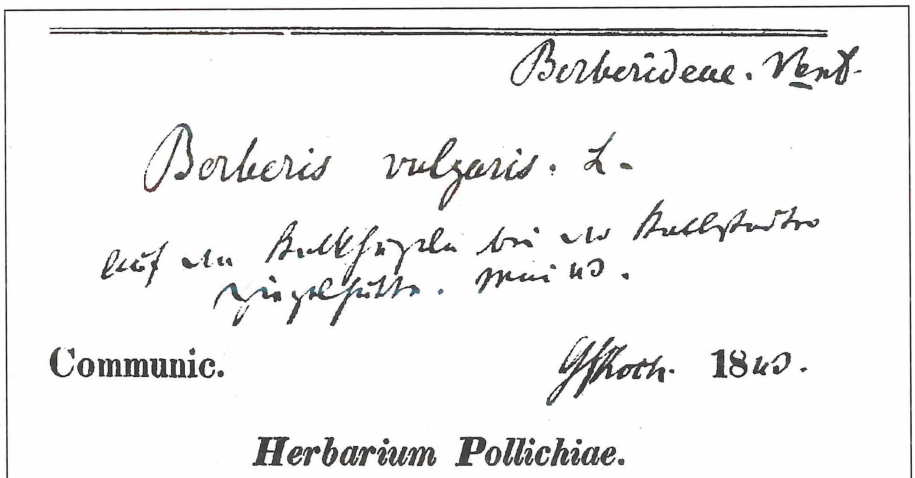 Berberideae. Vent.
Berberis vulgaris. L.
auf den Kalkhügeln bei der Kallstadter
Ziegelhütte. Mai
Communic. Koch. 18
Herbarium Pollichiae.